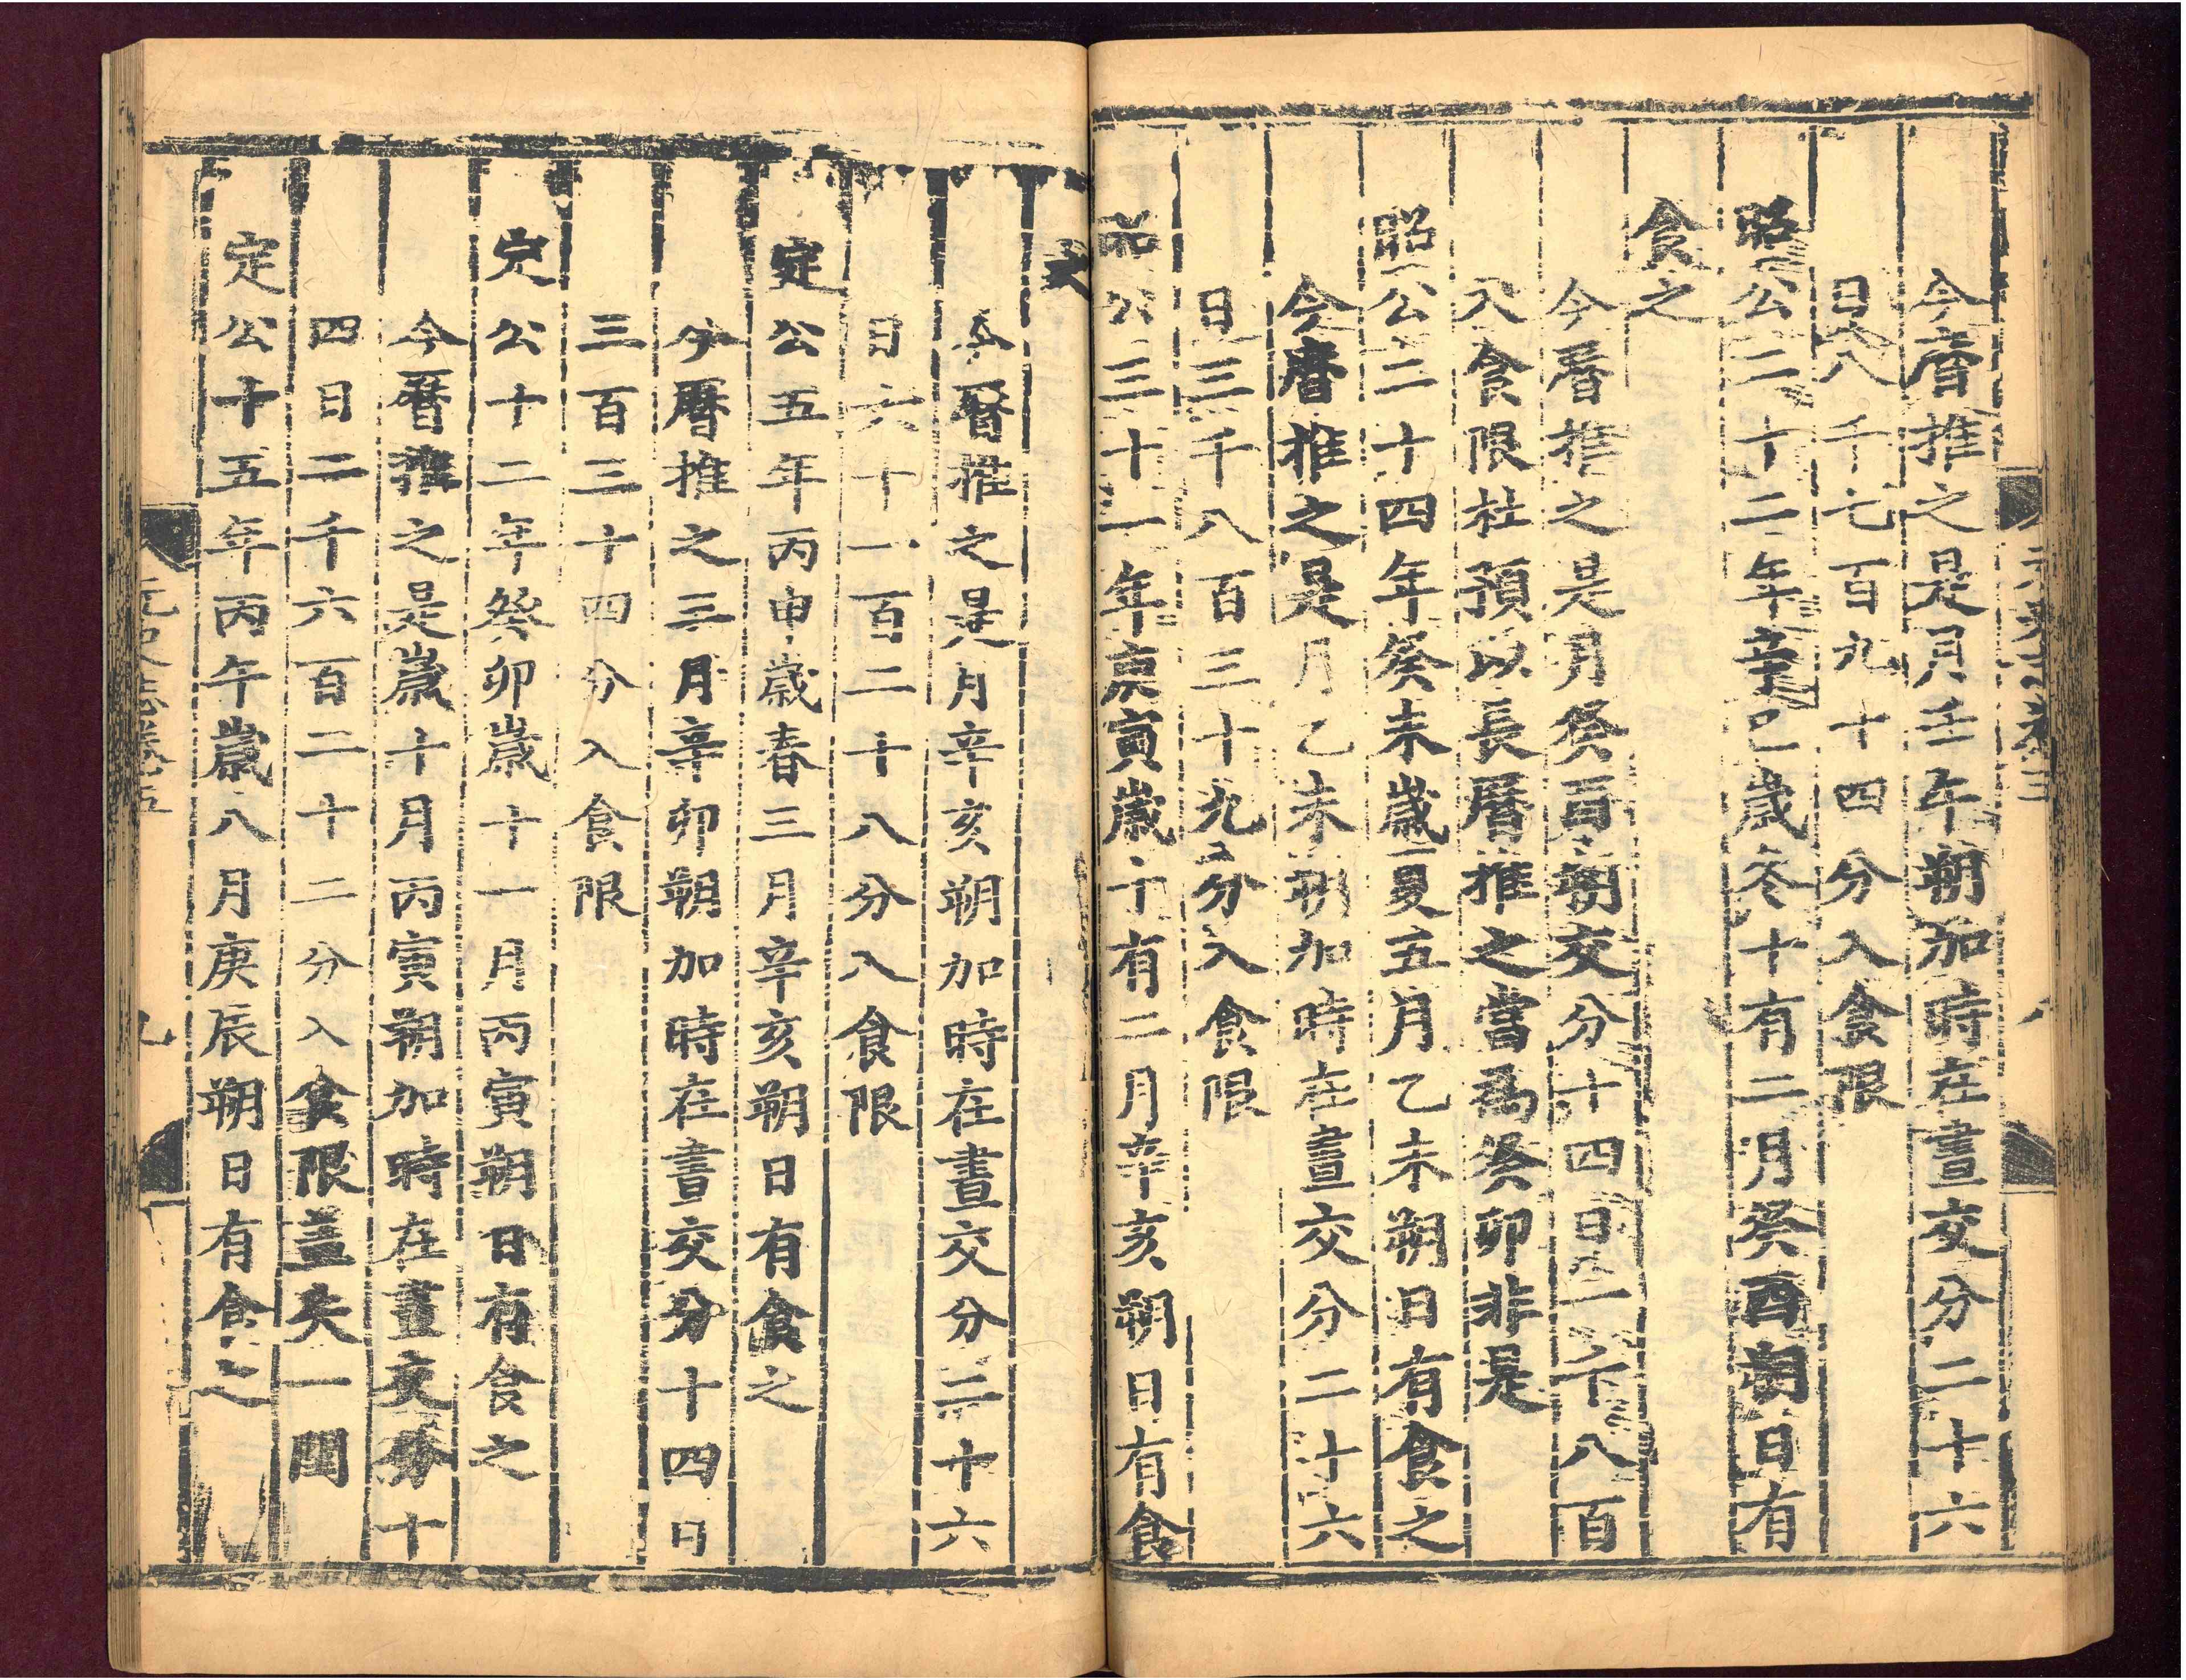 今曆推之是月壬午朔加時在晝交分二十六
日八千七百九十四分入食限
昭公二十二年辛巳歲冬十有二月癸酉朔日有
食之
今曆推之是月癸酉朔交分十四日一千八百
入食限杜預以長曆推之當為癸卯非是
昭公二十四年癸未歲夏五月乙未朔日有食之
今曆推之是月乙未朔加時在晝交分二十六
日三千八百三十九分入食限
昭公三十一年庚寅歲十有二月辛亥朔日有食
之
今曆推之是月辛亥朔加時在晝交分二十六
日六十一百二十八分入食限
定公五年丙申歲春三月辛亥朔日有食之
今曆推之三月辛卯朔加時在晝交分十四日
三百三十四分入食限
定公十二年癸卯歲十一月丙寅朔日有食之
今曆推之是歲十月丙寅朔加時在晝交分十
四日二千六百二十二分入食限蓋失一閏
定公十五年丙午歲八月庚辰朔日有食之
元史志卷五
九